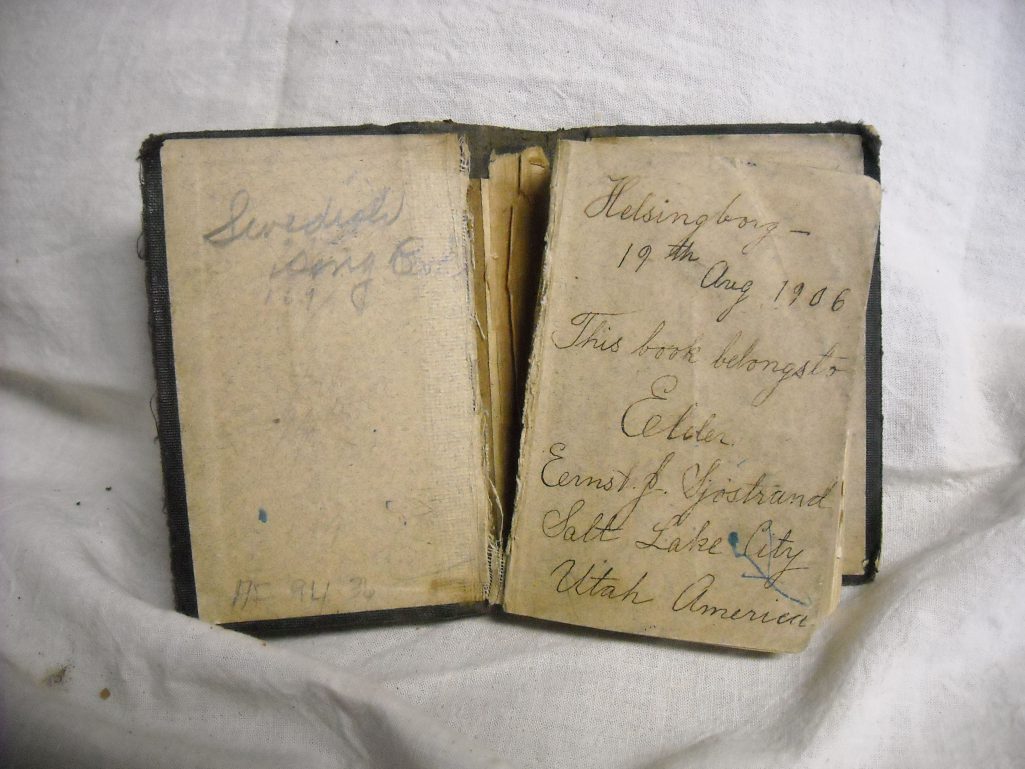 Swedish
Song Book
Helsingborg –
19th Aug 1906
This book belongs to
Eelder
Eernst. J. Sjöstrand
Salt Lake City
Utah America